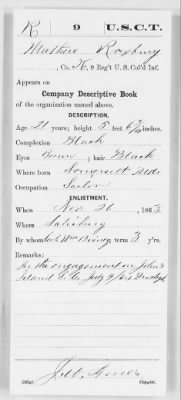 R 9 U.S.C.T.
Mathew Roxbury
, Co. K, 9 Reg't U. S. Col'd Inf.
Appears on
Company Descriptive Book
of the organization named above.
DESCRIPTION.
Age 21 years; height 5 feet 6 inches.
Complexion Black
Eyes Brown; hair Black
Where born Somerset Md
Occupation Sailor
ENLISTMENT.
When Nov 26, 1863.
Where Salisbury
By whom Wm Birney; term 3 y'rs.
Remarks:
In the engagement on John's
Island S.C. July 9/64
Copyist.